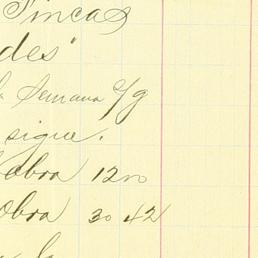 Fincas
des"
la Semana c/g
sigue.
obra 12 00
Obra 30 42